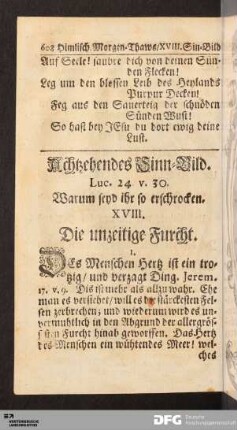 608 Himlisch Morgen-Thawe/XVIII. Sin-Bild
Auf Seele! saubre dich von deinen Sün-
den Flecken!
Leg um den blossen Leib des Heylands
Purpur Decken!
Feg aus den Sauerteig der schnöden
Sünden Wust!
So hast bey JEsu du dort ewig deine
Lust.
Achtzehendes Sinn-Bild.
Luc. 24 v. 30.
Warum seyd ihr so erschrocken.
XVIII.
Die unzeitige Furcht.
I.
DEs Menschen Hertz ist ein tro-
tzig/ und verzagt Ding. Jerem.
17. v. 9. Dis ist mehr als allzu wahr. Ehe
man es versiehet/ will es die stärckesten Fel-
sen zerbrechen; und wiederum wird es un-
vermuhtlich in den Abgrund der allergrös-
sesten Furcht hinab geworffen. Das Hertz
des Menschen ein wühtendes Meer! wel-
ches
DFG Deutsche
Forschungsgemeinschaft